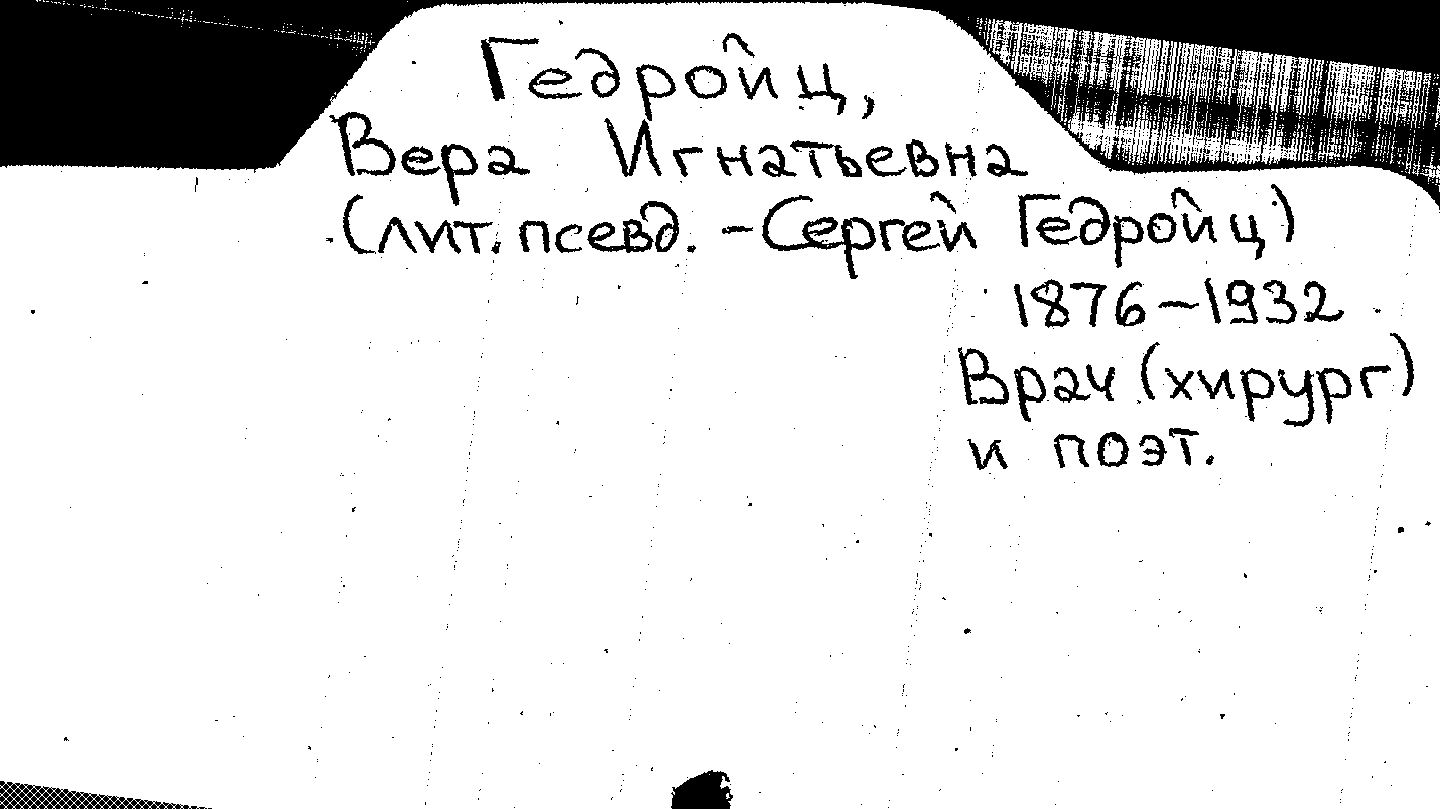 Гедройц,
Вера Игнатьевна
(лит. псевд. - Сергей Гедройц)
1876-1932
Врач (хирург)
и поэт.